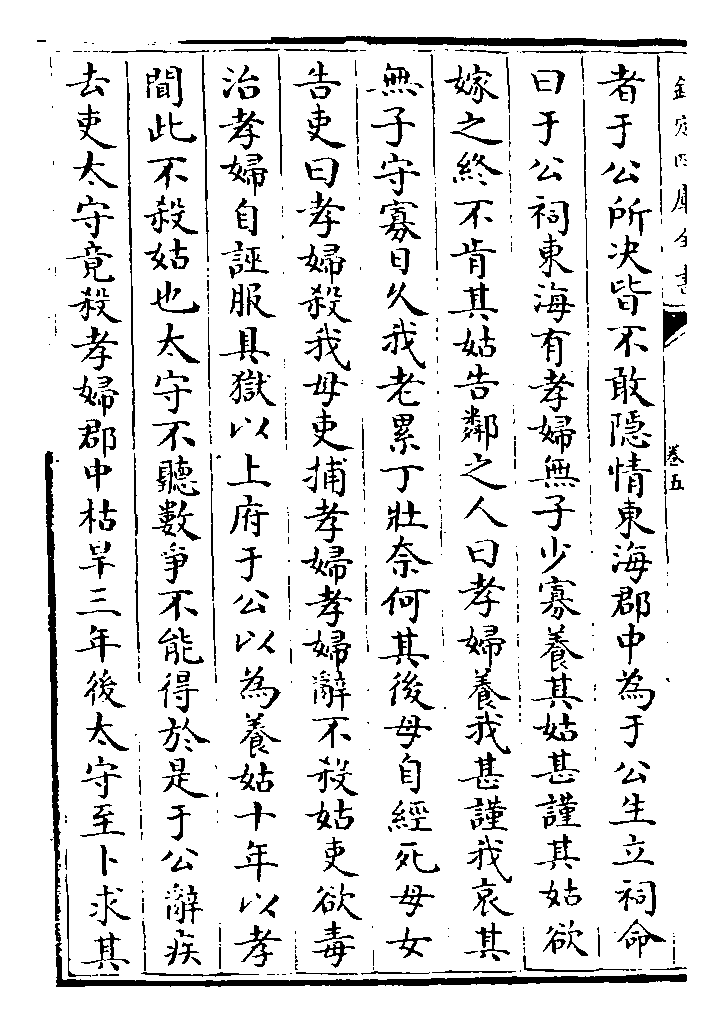 欽定四庫全書
卷五
者于公所决皆不敢隱情東海郡中為于公生立祠命
曰于公祠東海有孝婦無子少寡養其姑甚謹其姑欲
嫁之終不肯其姑告鄰之人曰孝婦養我甚謹我哀其
無子守寡日久我老累丁壯奈何其後母自經死母女
告吏曰孝婦殺我母吏捕孝婦孝婦辭不殺姑吏欲毒
治孝婦自誣服具獄以上府于公以為養姑十年以孝
聞此不殺姑也太守不聽數爭不能得於是于公辭疾
去吏太守竟殺孝婦郡中枯旱三年後太守至卜求其